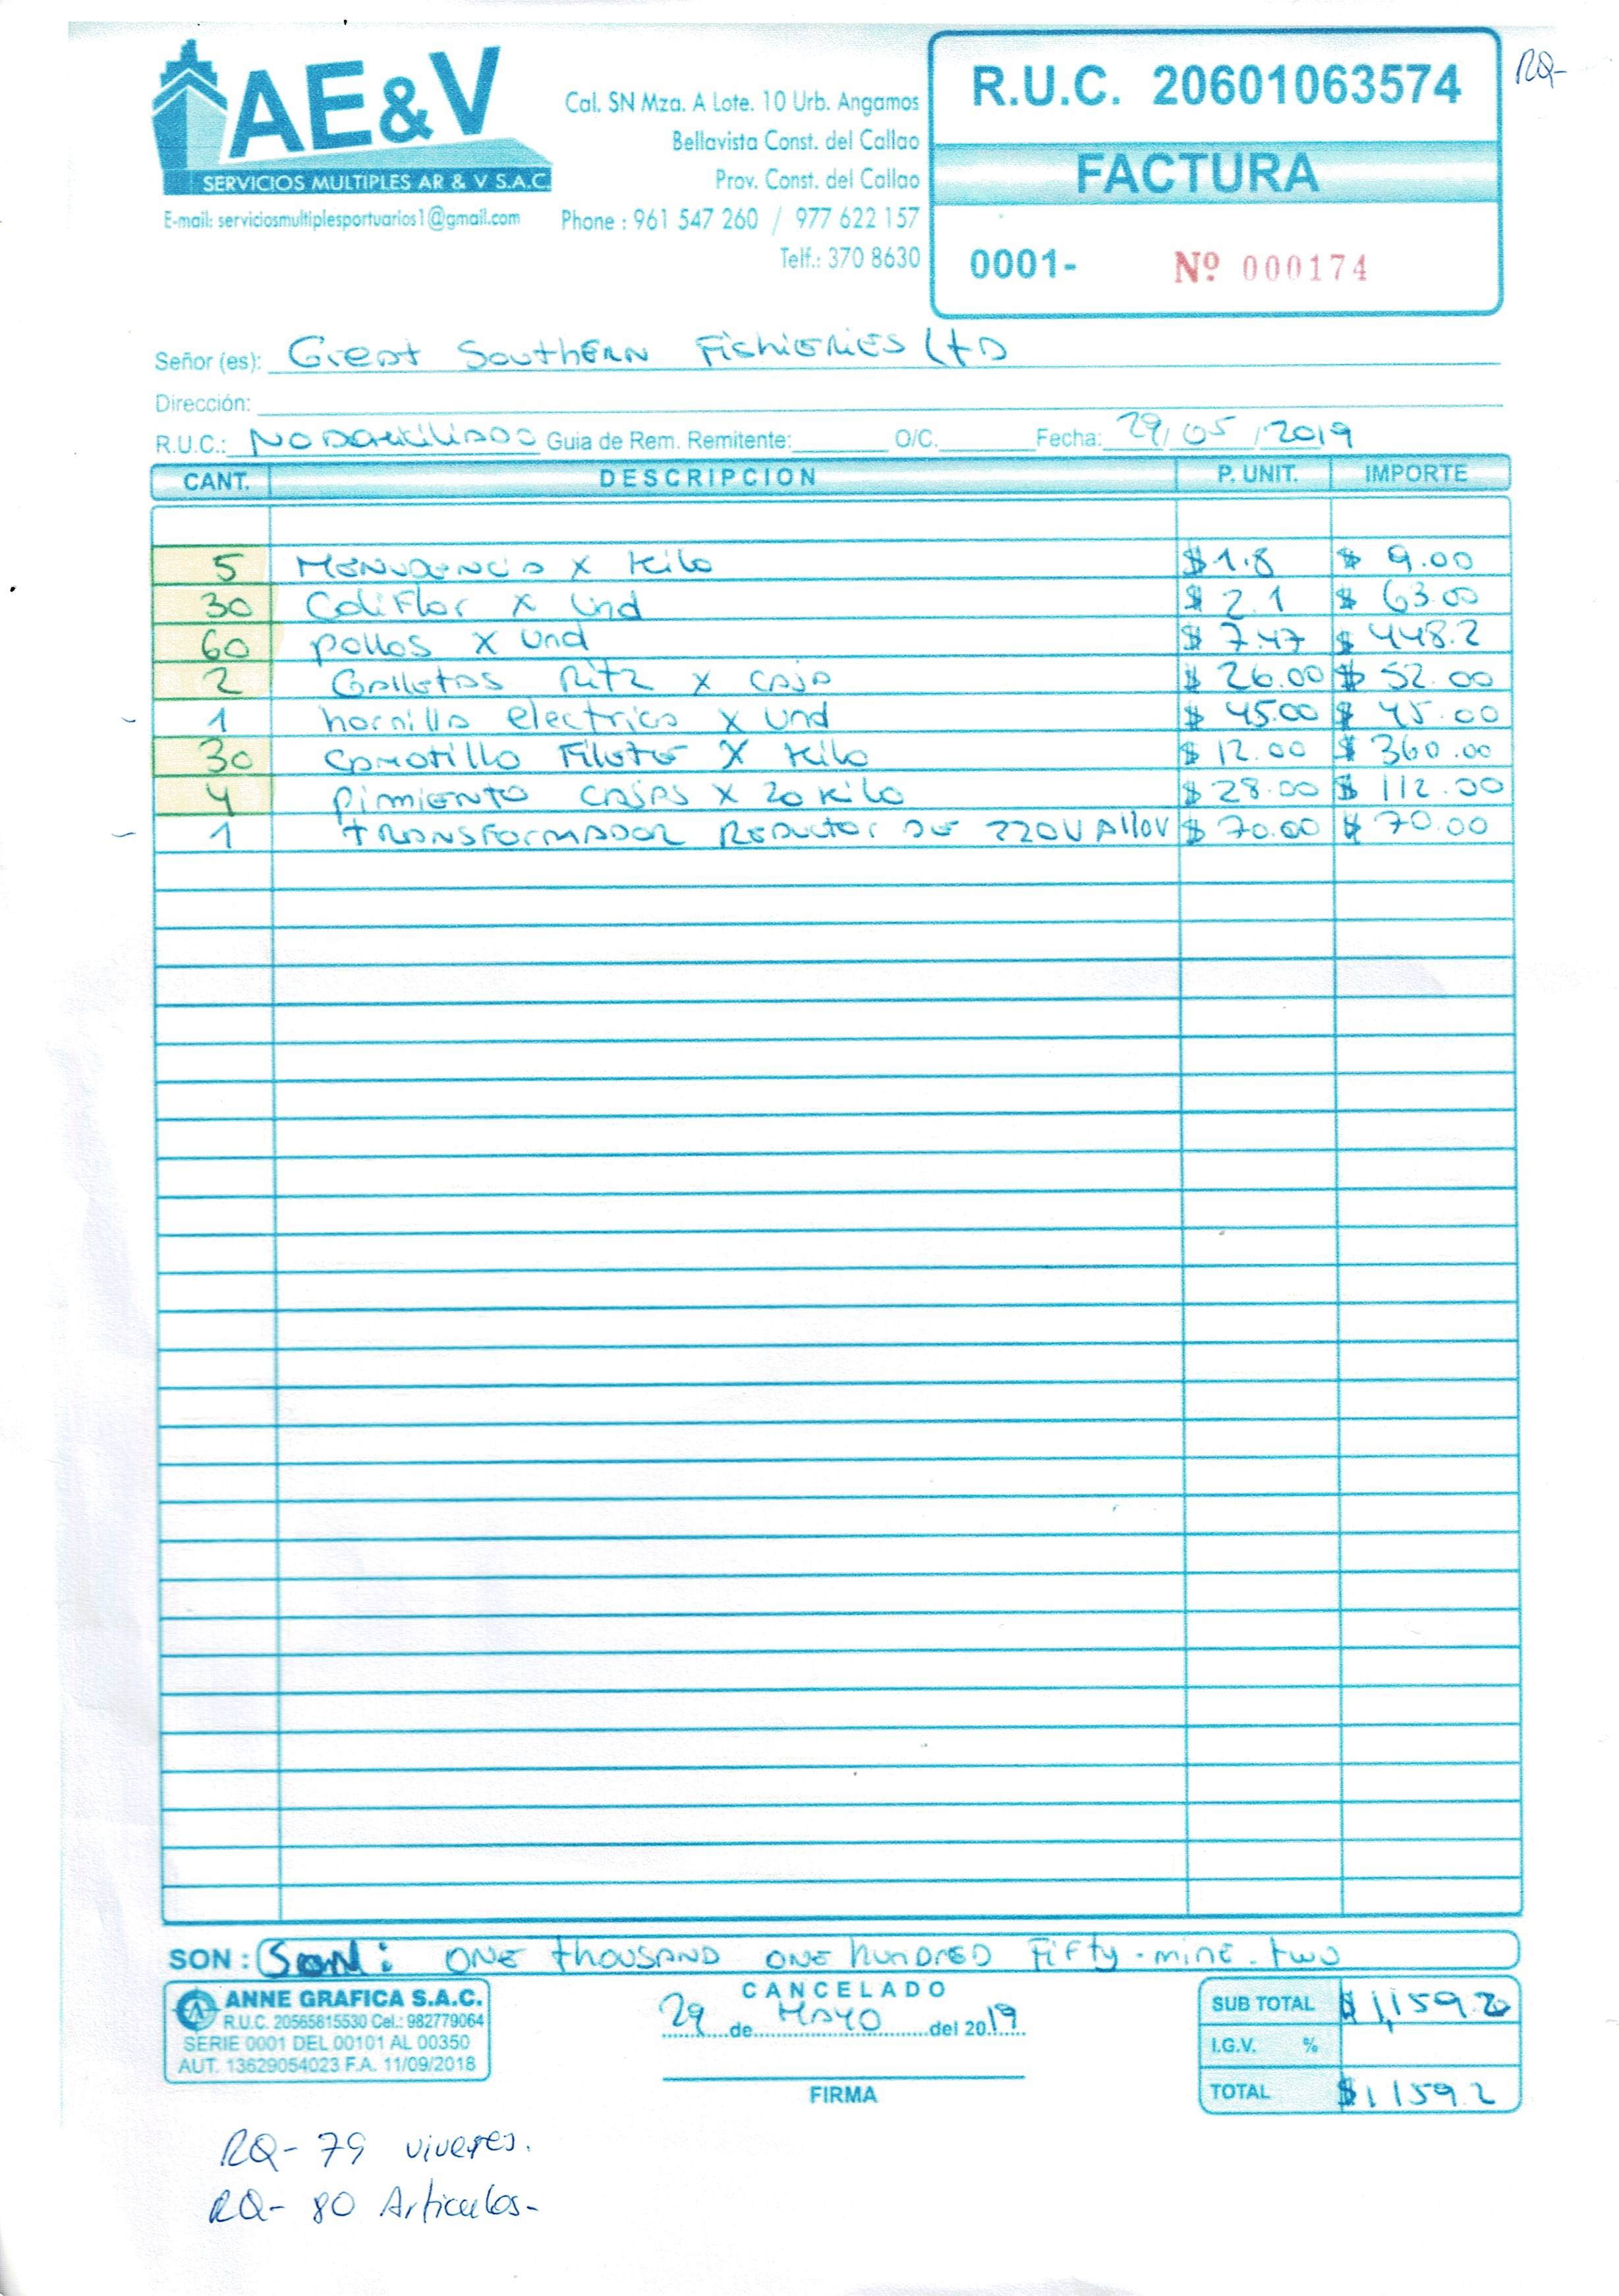 AE&V
SERVICIOS MULTIPLES AR & V S.A.C.
E-mail: serviciosmultiplesportuarios1@gmail.com
Cal. SN Mza. A Lote. 10 Urb. Angamos
Bellavista Const. del Callao
Prov. Const. del Callao
Phone : 961 547 260 / 977 622 157
Telf.: 370 8630
R.U.C. 20601063574
FACTURA
0001- Nº 000174
RQ-
Señor (es): Great Southern Fishieries Ltd
Dirección:
R.U.C.: No Domiciliado Guia de Rem. Remitente: O/C. Fecha: 29/05/2019
CANT. DESCRIPCION P. UNIT. IMPORTE
5 Menudencia x Kilo $1.8 $ 9.00
30 Coliflor x Und $ 2.1 $ 63.00
60 pollos x und $ 7.47 $ 448.2
2 Galletas Ritz x caja $ 26.00 $ 52.00
1 hornilla electrica x und $ 45.00 $ 45.00
30 Camotillo Filete x Kilo $ 12.00 $ 360.00
4 Pimiento cajas x 20 Kilo $ 28.00 $ 112.00
1 transformador Reductor de 220V A 110V $ 70.00 $ 70.00
SON : Son: One thousand one hundred Fifty-mine-two
ANNE GRAFICA S.A.C.
R.U.C. 20565815530 Cel.: 982779064
SERIE 0001 DEL 00101 AL 00350
AUT. 13629054023 F.A. 11/09/2018
CANCELADO
29 de Mayo del 2019
FIRMA
SUB TOTAL $ 1,159.2
I.G.V. %
TOTAL $1159.2
RQ- 79 viveres.
RQ- 80 Articulos-